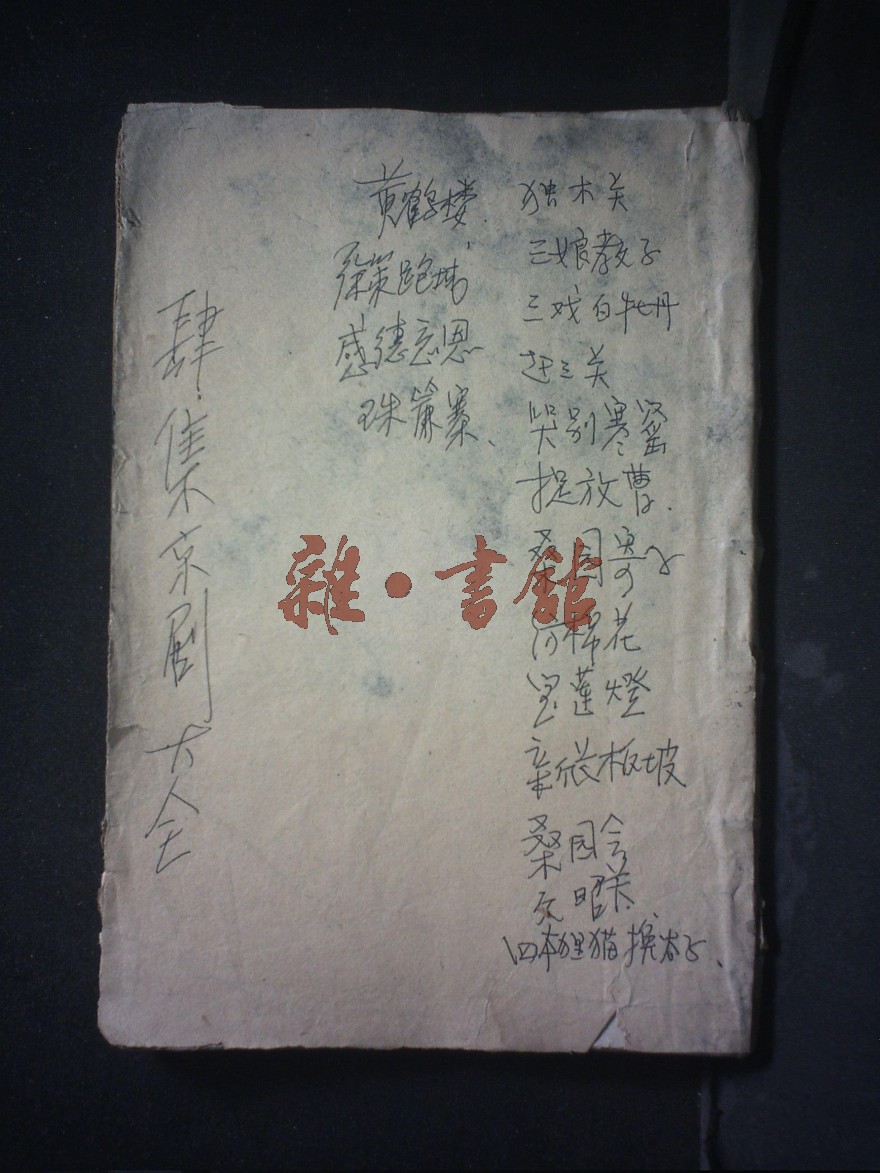 肆集京剧大全
黄鹤楼
徐策跑城
感德忘恩
珠簾寨、
独木关
三娘教子
三戏白牡丹
赶三关
哭别寒窑
捉放曹
桑园寄子
雜·書館
棉花
宝莲燈
長板坡
桑园会
文昭关
四本狸猫換太子、